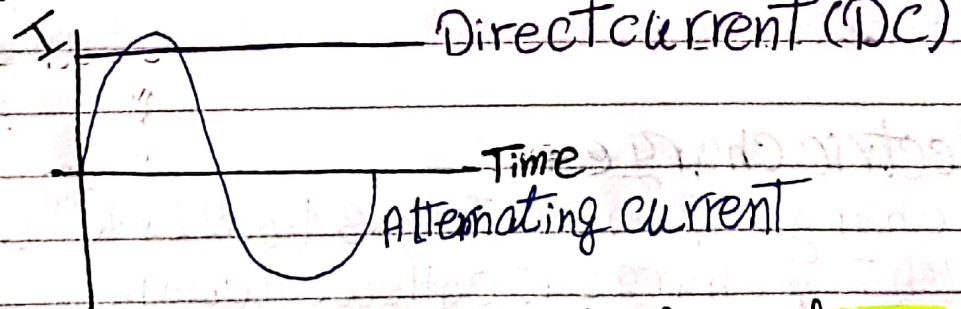 I
Direct current (DC)
Time
Alternating current